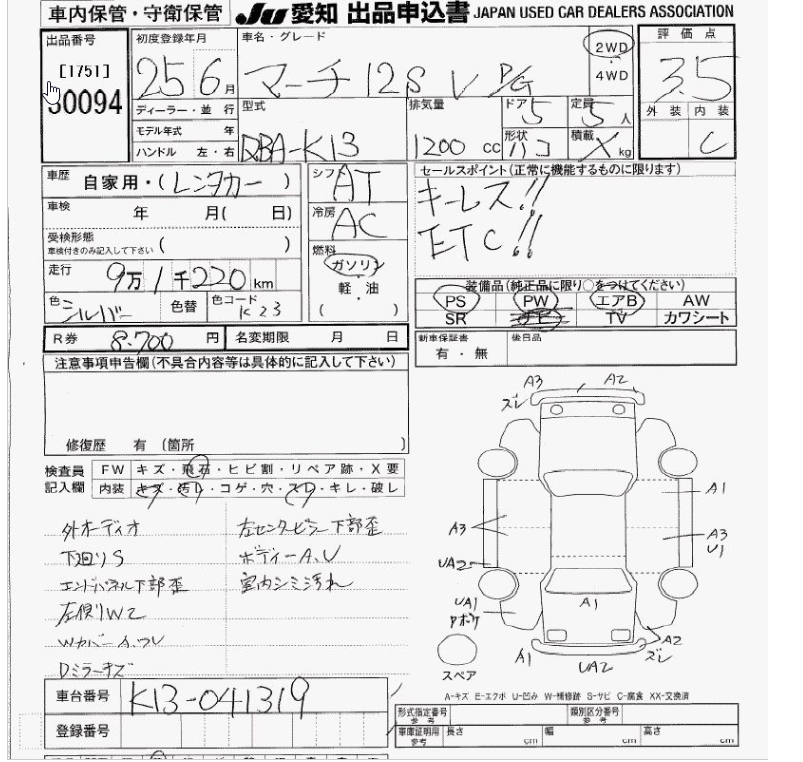 車内保管・守衛保管 JU 愛知 出品申込書 JAPAN USED CAR DEALERS ASSOCIATION
出品番号 初度登録年月 車名・グレード 2WD 評価点
[1751] 25 6月 マーチ 12S V P/G 4WD 3.5
30094 ディーラー・並行 型式 排気量 ドア 5 定員 5人 外装 内装
モデル年式 年 C
ハンドル 左・右 DBA-K13 1200cc 形状 ハコ 積載 X kg
車歴 自家用・(レンタカー) シフト AT セールスポイント(正常に機能するものに限ります)
車検 年 月( 日) 冷房 AC キーレス!!
受検形態 ( ) ETC!!
車検付きのみ記入して下さい
走行 9万1千220km 燃料 ガソリン 装備品(純正品に限り○をつけてください)
色 シルバー 色替 色コード K23 軽・油 PS PW エアB AW
( ) SR ナビ TV カワシート
R券 8.700円 名変期限 月 日 新車保証書 後日品
有・無
注意事項申告欄(不具合内容等は具体的に記入して下さい)
修復歴 有 (箇所 )
検査員 FW キズ・飛石・ヒビ割・リペア跡・X要
記入欄 内装 キズ・汚レ・コゲ・穴・スレ・キレ・破レ
外オーディオ 左センターピラー下部歪
下廻りS ボディーA.U
エンドパネル下部歪 室内シミ汚れ
左側リW2
WカバーA.ワレ
Dミラーキズ
A3 A2
ズレ
A1
A3 A3
U1
UA2
UA1 A1
A2
ズレ
A1 UA2
スペア
A-キズ E-エクボ U-凹み W-補修跡 S-サビ C-腐食 XX-交換済
車台番号 K13-041319
登録番号
形式指定番号 参考 類別区分番号 参考
車庫証明用 参考 長さ cm 幅 cm 高さ cm